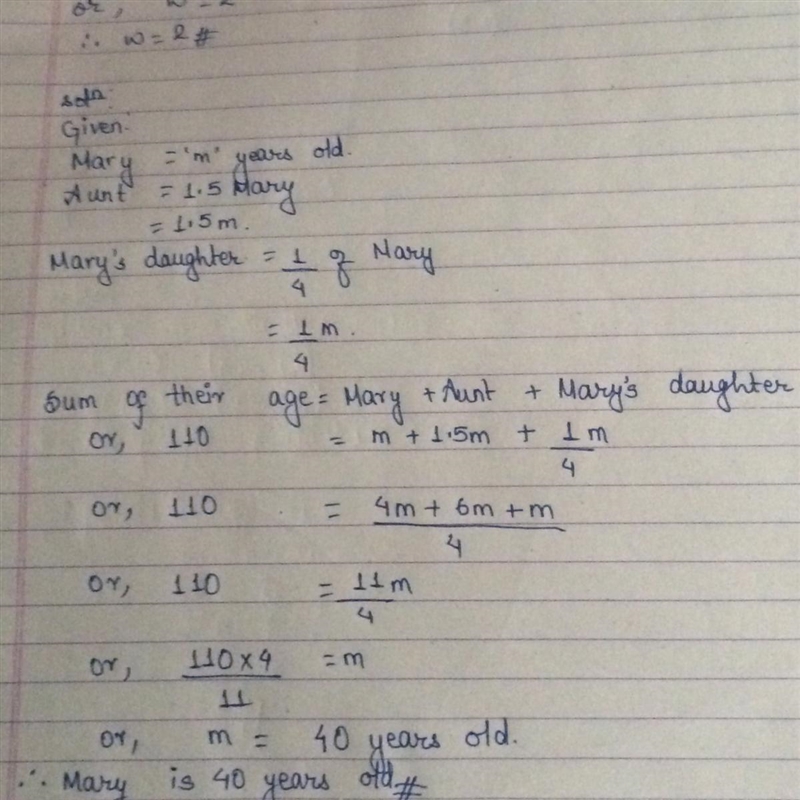 or, w = 2
∴ w = 2 #
soln:
Given:
Mary = 'm' years old.
Aunt = 1.5 Mary
= 1.5 m.
Mary's daughter = 1/4 of Mary
= 1/4 m.
Sum of their age = Mary + Aunt + Mary's daughter
or, 110 = m + 1.5m + 1/4 m
or, 110 = (4m + 6m + m)/4
or, 110 = 11m/4
or, (110 × 4)/11 = m
or, m = 40 years old.
∴ Mary is 40 years old #